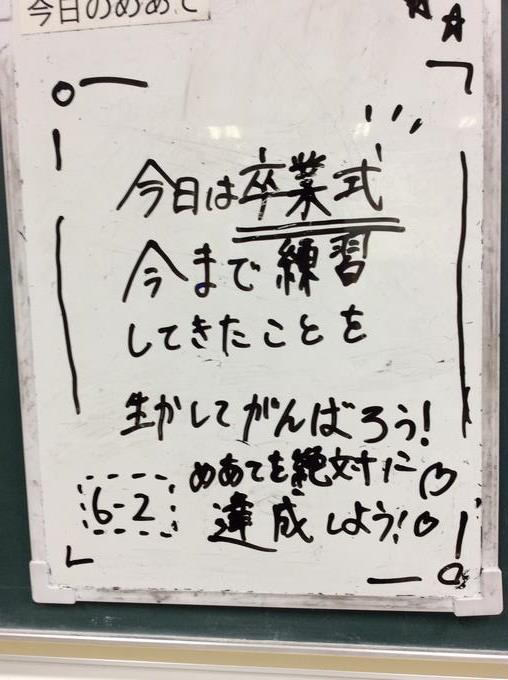 今日のめあて
今日は卒業式
今まで練習
してきたことを
生かしてがんばろう!
めあてを絶対に
6-2
達成しよう!